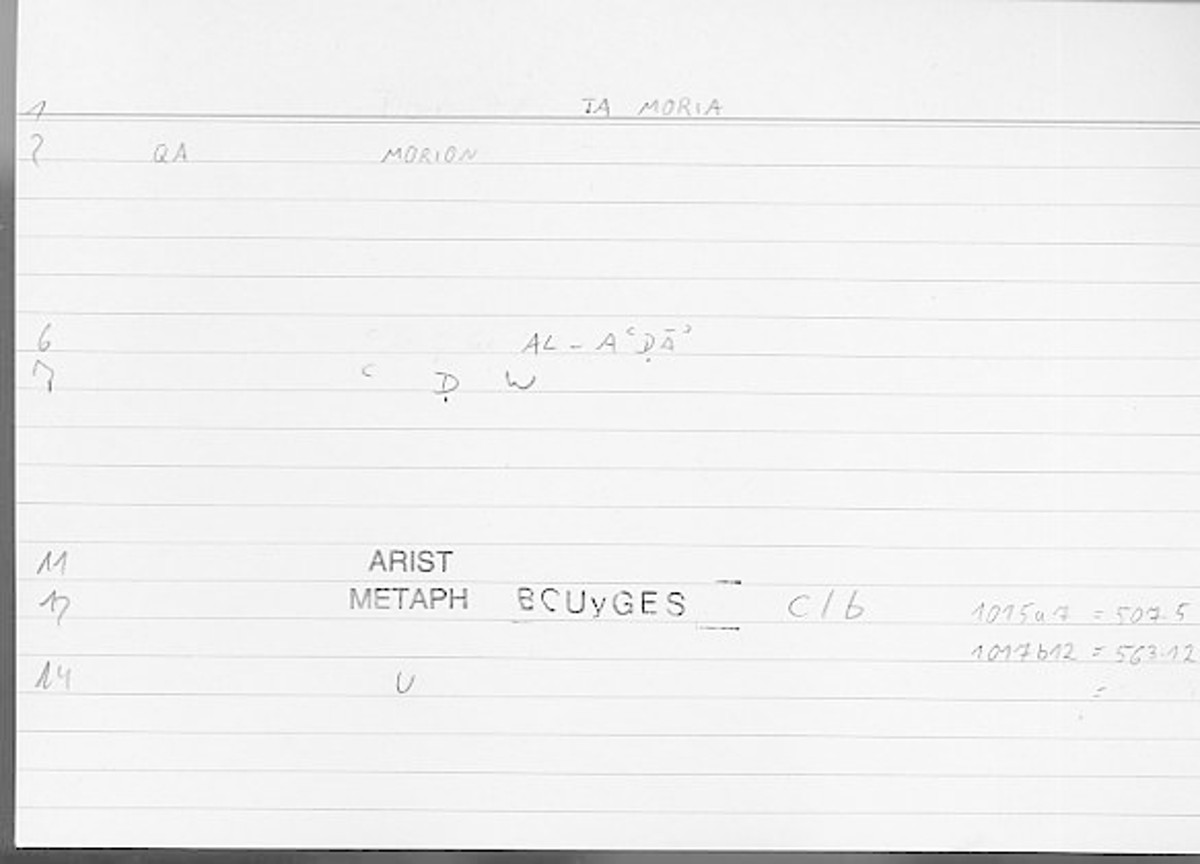 1 TA MORIA
2 QA MORION
6 AL-AʿḌĀʾ
7 ʿ Ḍ W
11 ARIST
12 METAPH BOUyGES C/b 1015a7 = 507.5
1017b12 = 563.12
14 U =